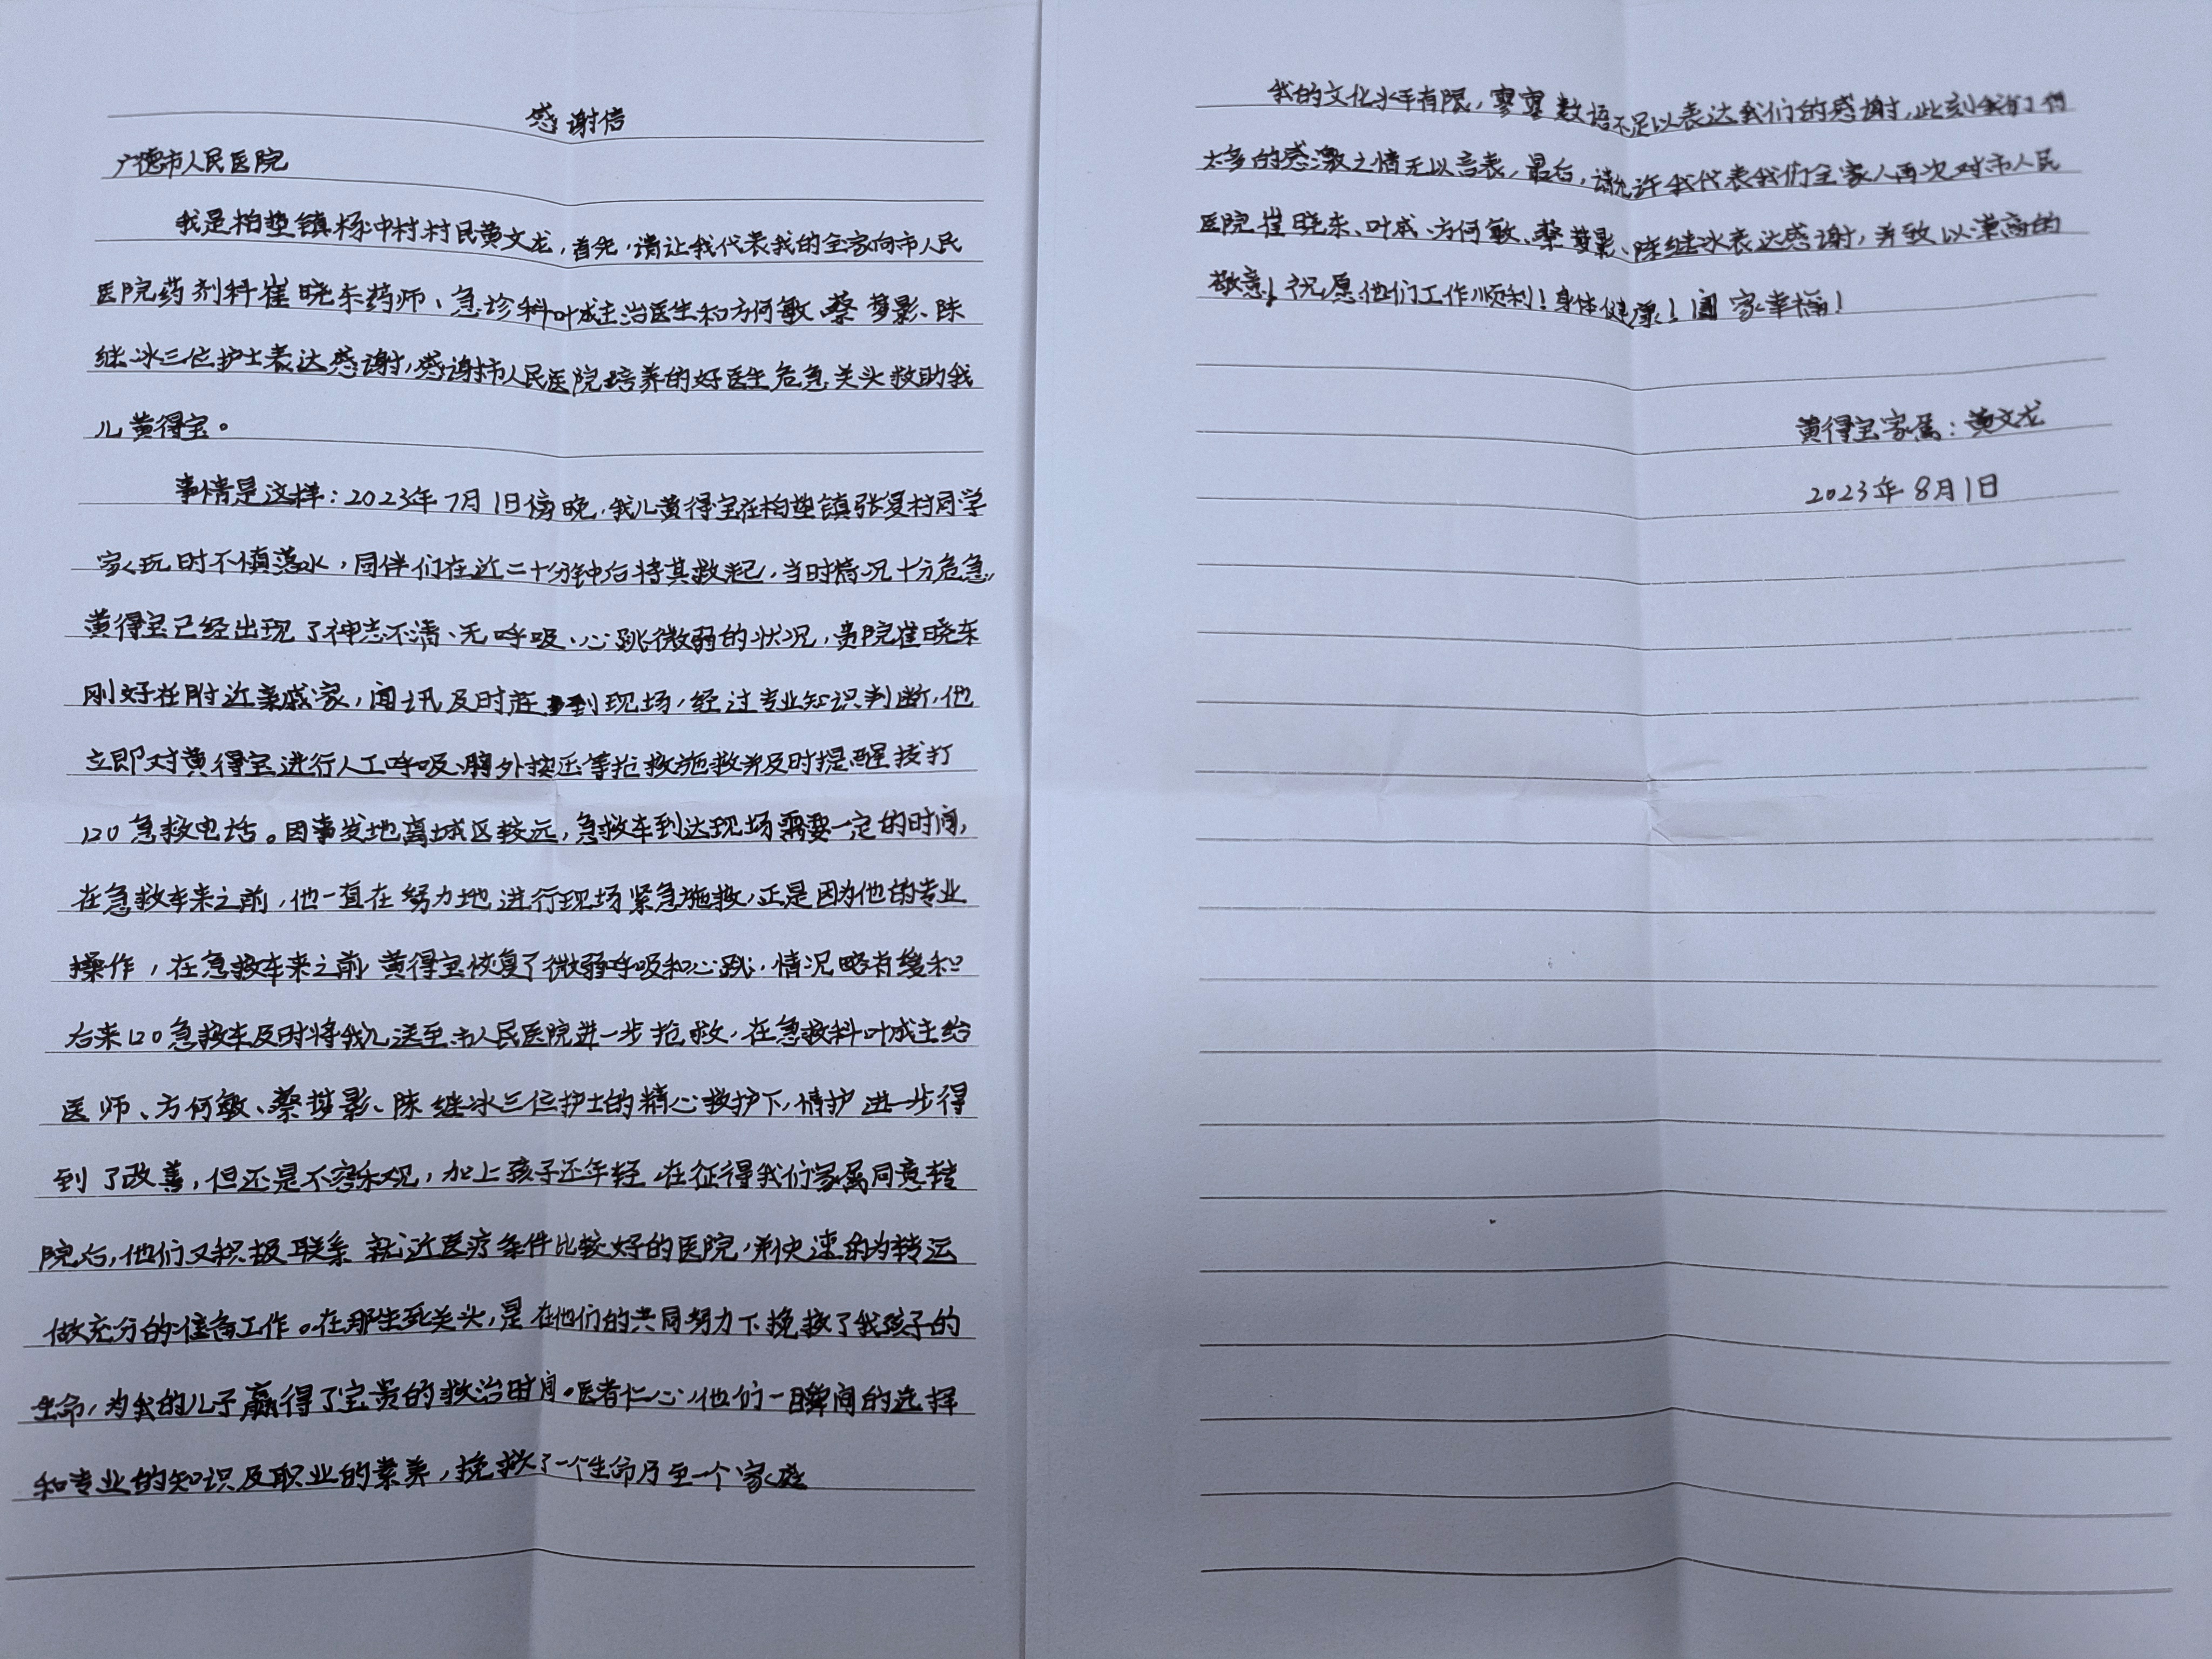 感谢信
广德市人民医院
我是柏垫镇杨冲村村民黄文龙，首先，请让我代表我的全家向市人民
医院药剂科崔晓东药师、急诊科叶成主治医生和方何敏、蔡梦影、陈
继冰三位护士表达感谢，感谢市人民医院培养的好医生危急关头救助我
儿黄得宝。
事情是这样：2023年7月1日傍晚，我儿黄得宝在柏垫镇张复村同学
家玩时不慎落水，同伴们在近二十分钟后将其救起，当时情况十分危急，
黄得宝已经出现了神志不清、无呼吸、心跳微弱的状况，贵院崔晓东
刚好在附近亲戚家，闻讯及时赶到现场，经过专业知识判断，他
立即对黄得宝进行人工呼吸、胸外按压等抢救施救并及时提醒拨打
120急救电话。因事发地离城区较远，急救车到达现场需要一定的时间，
在急救车来之前，他一直在努力地进行现场紧急施救，正是因为他的专业
操作，在急救车来之前黄得宝恢复了微弱呼吸和心跳，情况略有缓和
后来120急救车及时将我儿送至市人民医院进一步抢救，在急救科叶成主给
医师、方何敏、蔡梦影、陈继冰三位护士的精心救护下，情护进一步得
到了改善，但还是不容乐观，加上孩子还年轻，在征得我们家属同意转
院后，他们又积极联系就近医疗条件比较好的医院，并快速的为转运
做充分的准备工作。在那生死关头，是在他们的共同努力下挽救了我孩子的
生命，为我的儿子赢得了宝贵的救治时间。医者仁心，他们一瞬间的选择
和专业的知识及职业的素养，挽救了一个生命乃至一个家庭
我的文化水平有限，寥寥数语不足以表达我们的感谢，此刻我们有
太多的感激之情无以言表，最后，请允许我代表我们全家人再次对市人民
医院崔晓东、叶成、方何敏、蔡梦影、陈继冰表达感谢，并致以崇高的
敬意！祝愿他们工作顺利！身体健康！阖家幸福！
黄得宝家属：黄文龙
2023年8月1日